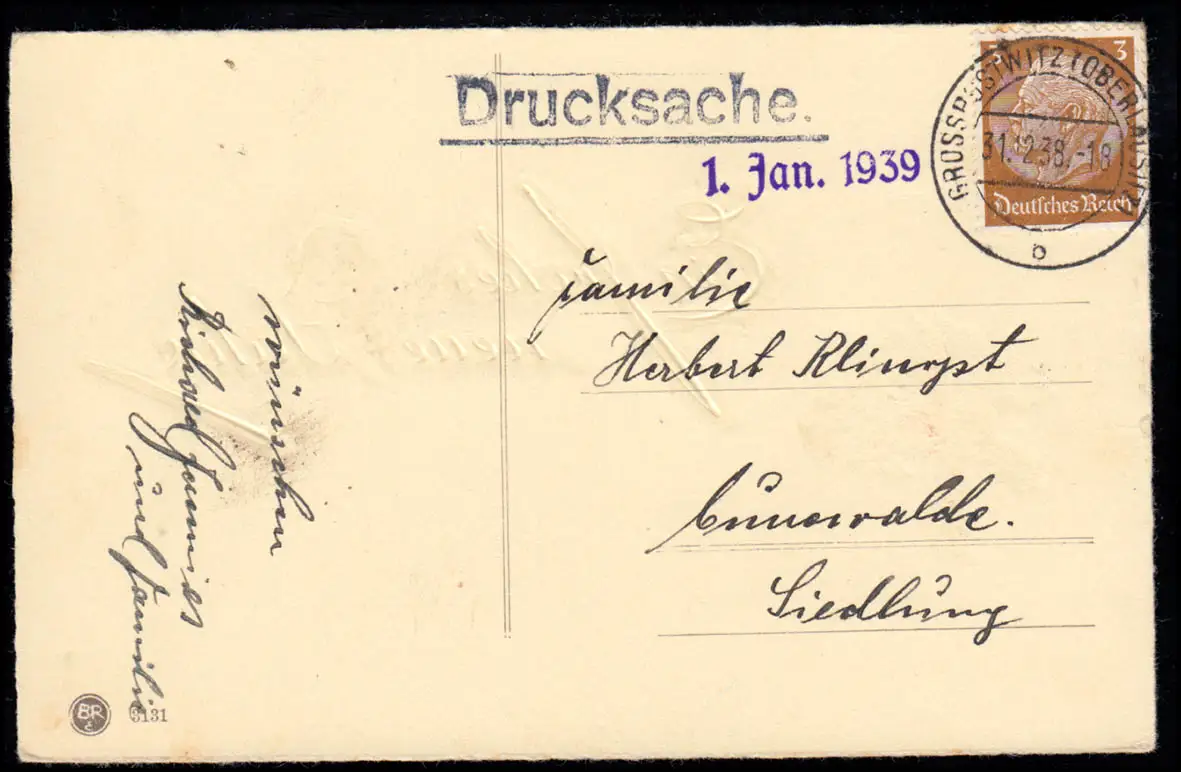 Drucksache.
1. Jan. 1939
3 3
GROSSPOSTWITZ (OBERLAUSITZ)
31.12.38.-18
Deutsches Reich
b
Familie
Herbert Klingst
Cunewalde.
Siedlung
wünschen
Richard
und Familie
BR
3131